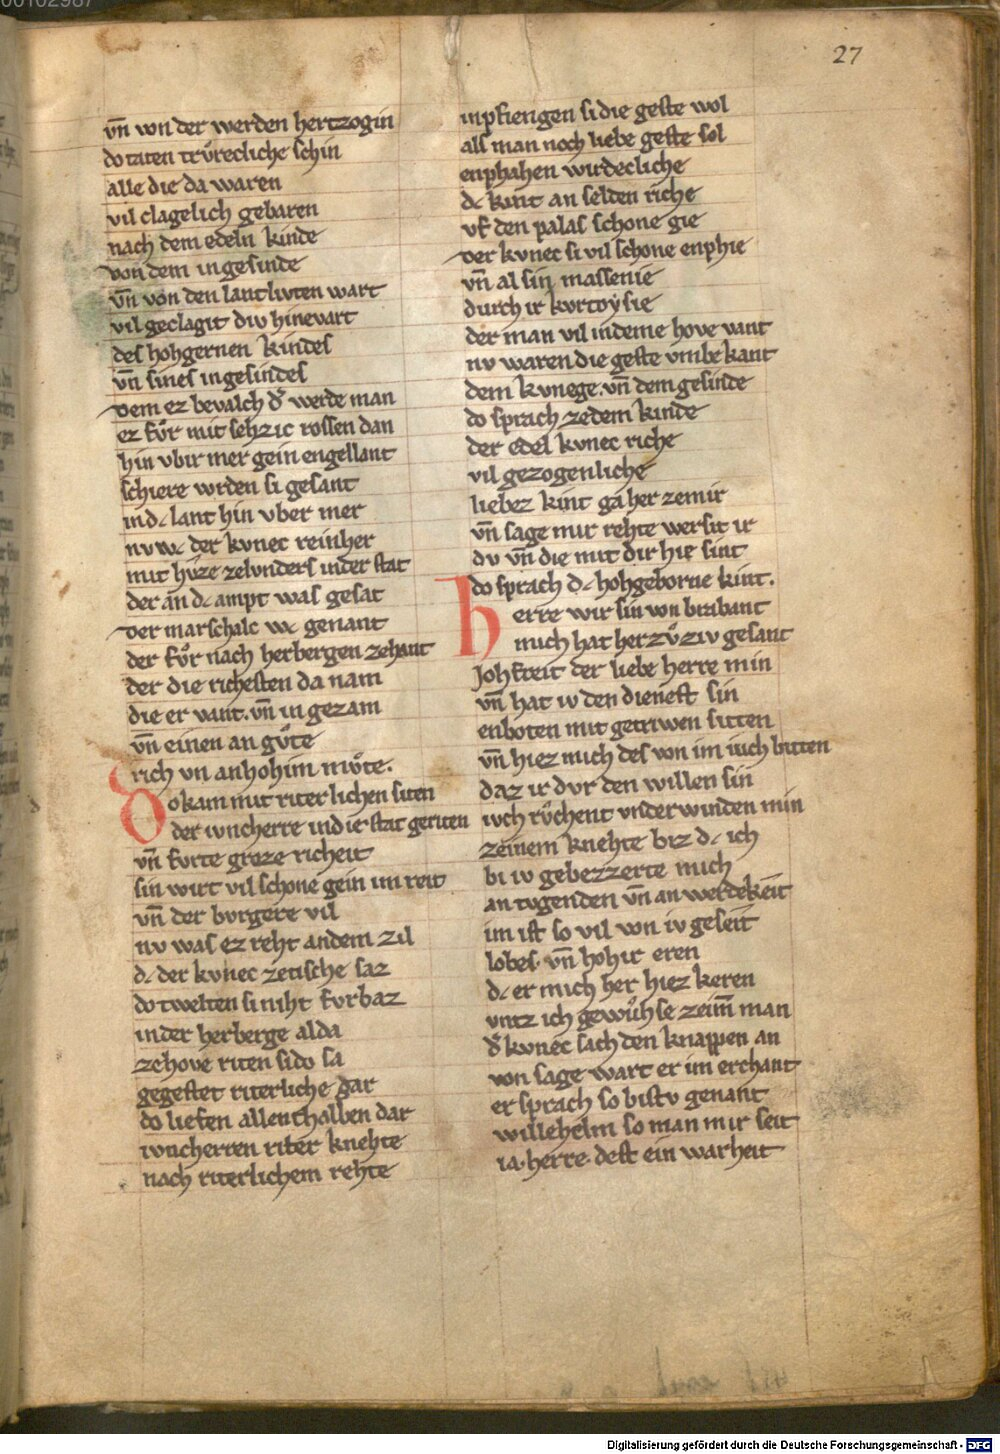 00102987
27
vn̄ von der werden hertzogin
do taten trv̊recliche schin
alle die da waren
vil clagelich gebaren
nach dem edeln kinde
von dem ingesinde
vn̄ von den lantlivten wart
vil geclagit div hinevart
des hohgernen kindes
vn̄ sines ingesindes
dem ez bevalch d̕ werde man
ez fv̊r mit sehzic rossen dan
hin vbir mer gein engellant
schiere wrden si gesant
in dc lant hin vber mer
nv wc der kvnec reinher
mit hvze zelvnders inder stat
der an dc ampt was gesat
der marschalc wc genant
der fv̊r nach herbergen zehant
der die richesten da nam
die er vant. vn̄ in gezam
vn̄ einen an gv̊te
rich vn anhohim mv̊te.
Do kam mit riterlichen siten
der ivncherre indie stat geriten
vn̄ fvrte groze richeit
sin wirt vil schone gein im reit
vn̄ der bvrgere vil
nv was ez reht andem zil
dc der kvnec zetische saz
do twelten si niht fvrbaz
inder herberge alda
zehove riten si do sa
gegestet riterliche gar
do liefen allenthalben dar
ivncherren riter knehte
nach riterlichem rehte
inpfiengen si die geste wol
als man noch liebe geste sol
enphahen wirdecliche
dc kint an selden riche
vf den palas schone gie
der kvnec si vil schone enphie
vn̄ al sin massenie
durch ir kvrtoysie
der man vil indeme hove vant
nv waren die geste vmbekant
dem kvnege. vn̄ dem gesinde
do sprach zedem kinde
der edel kvnec riche
vil gezogenliche
liebez kint ga her zemir
vn̄ sage mir rehte wer sit ir
dv vn̄ die mit dir hie sint
do sprach dc hohgeborne kint.
Herre wir sin von brabant
mich hat her zv̊ ziv gesant
Johfreit der liebe herre min
vn̄ hat iv den dienest sin
enboten mit getriwen sitten
vn̄ hiez mich des von im iuch bitten
daz ir dvr den willen sin
ivch rv̊chent vnderwinden min
zeinem knehte biz dc ich
bi iv gebezzerte mich
an tvgenden vn̄ an werdekeit
im ist so vil von iv geseit
lobes. vn̄ hohir eren
dc er mich her hiez keren
vntz ich gewv̊hse zeim̄ man
d̕ kvnec sach den knappen an
von sage wart er im erchant
er sprach so bistv genant
willehelm so man mir seit
ia. herre. dest ein warheit
Digitalisierung gefördert durch die Deutsche Forschungsgemeinschaft - DFG